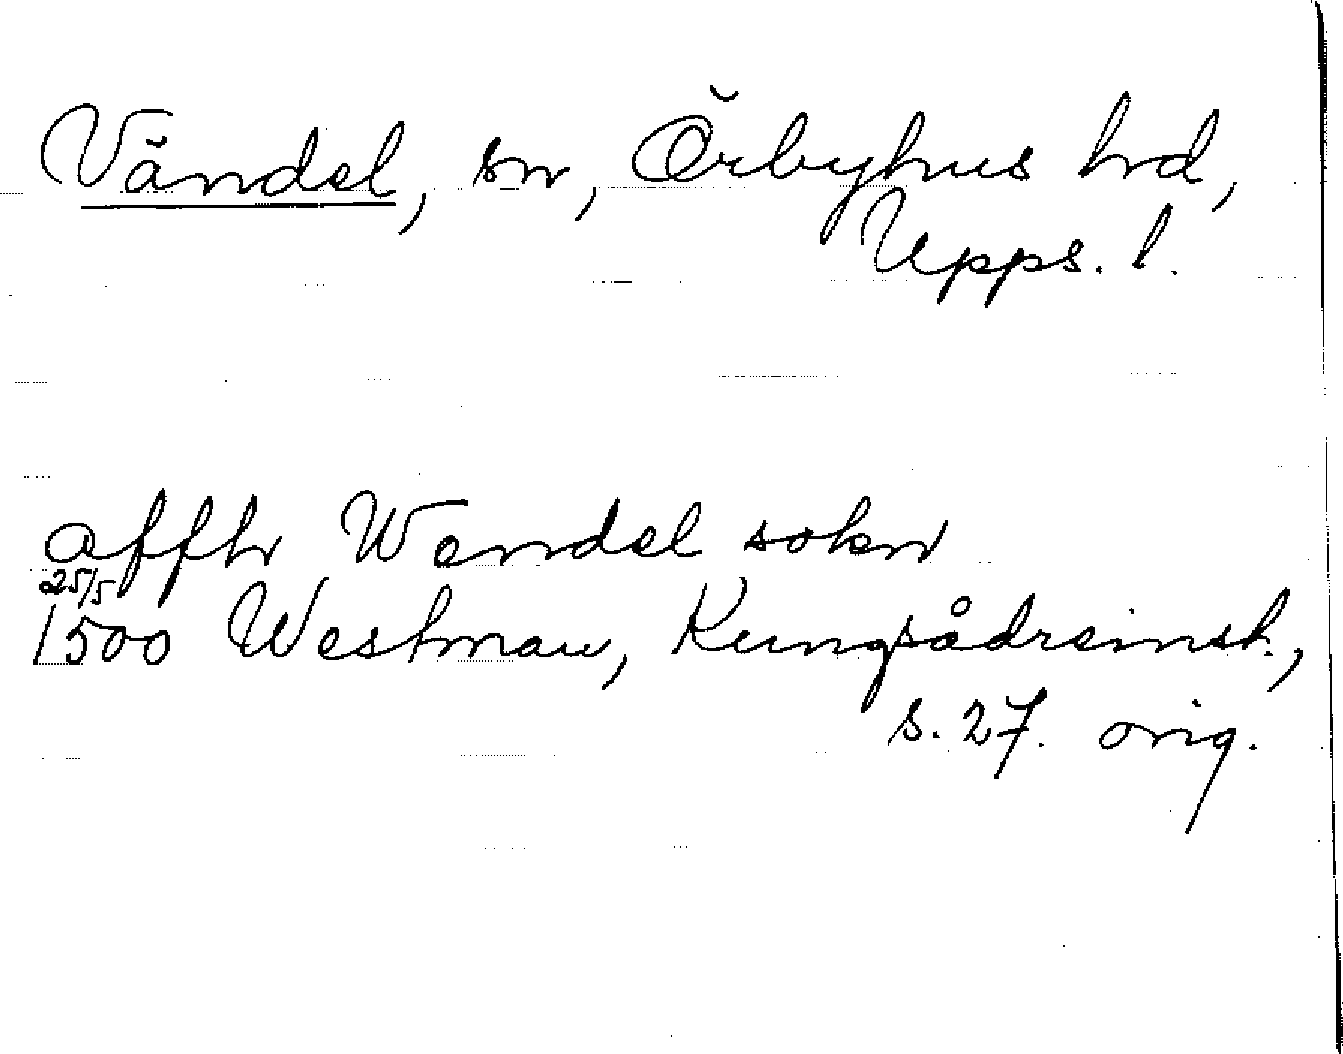 Vändel, sn, Örbyhus hrd,
Upps. l.
affh Wendel sokn
25/5
1500 Westman, Kungsådreinst.,
s. 27. orig.